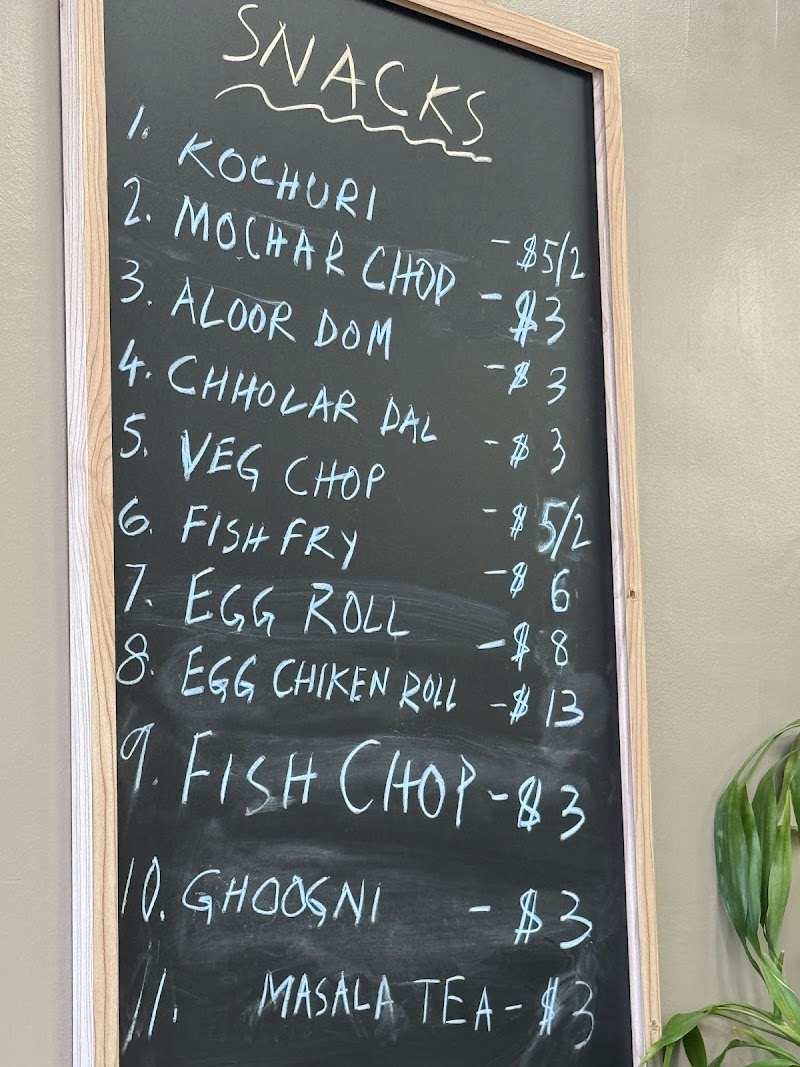 SNACKS
1. KOCHURI - $5/2
2. MOCHAR CHOP - $3
3. ALOOR DOM - $ 3
4. CHHOLAR DAL - $ 3
5. VEG CHOP - $ 5/2
6. FISH FRY - $ 6
7. EGG ROLL - $ 8
8. EGG CHIKEN ROLL - $ 13
9. FISH CHOP - $ 3
10. GHOOGNI - $3
11. MASALA TEA - $3